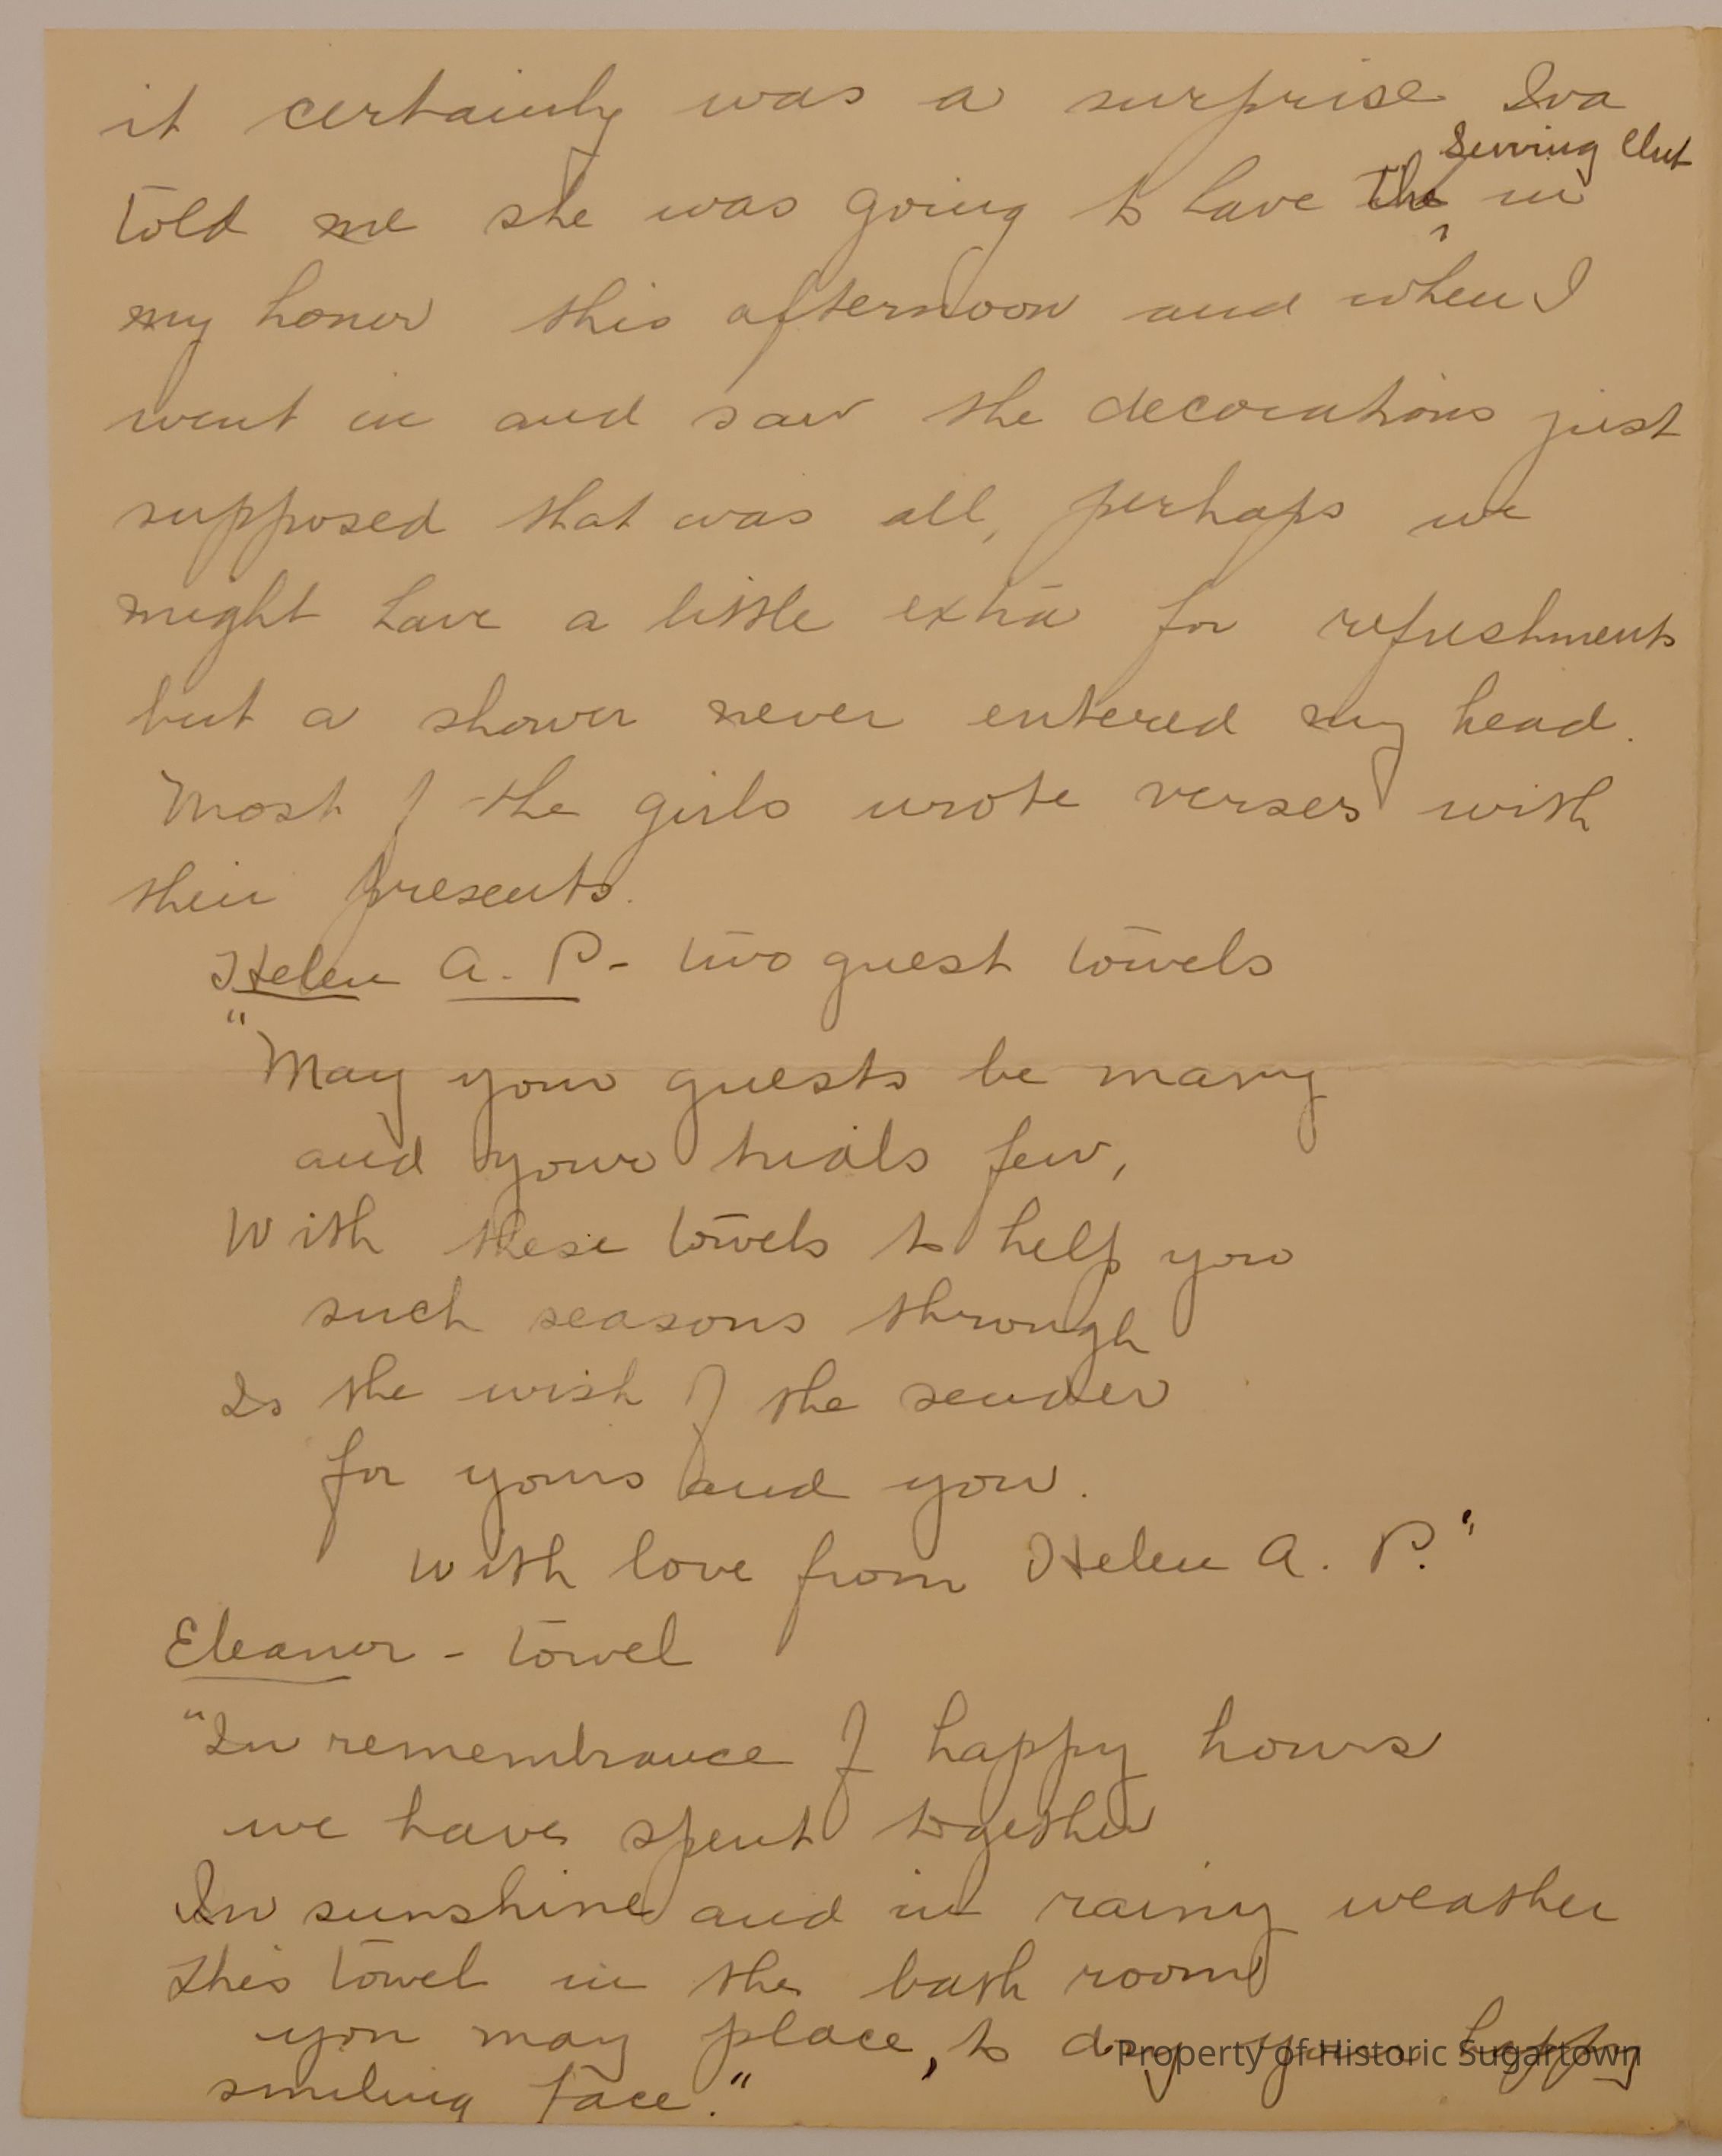 it certainly was a surprise Iva
Sewing Club
told me she was going to have the ‸ in
my honor this afternoon and when I
went in and saw the decorations just
supposed that was all, perhaps we
might have a little extra for refreshments
but a shower never entered my head.
Most of the girls wrote verses with
their presents.
Helen A. P. - two guest towels
"May your guests be many
and your trials few,
With these towels to help you
such seasons through
Is the wish of the sender
for yours and you.
With love from Helen A. P."
Eleanor - towel
"In remembrance of happy hours
we have spent together
In sunshine and in rainy weather
This towel in the bath room
you may place, to dry your happy
smiling face."
Property of Historic Sugartown